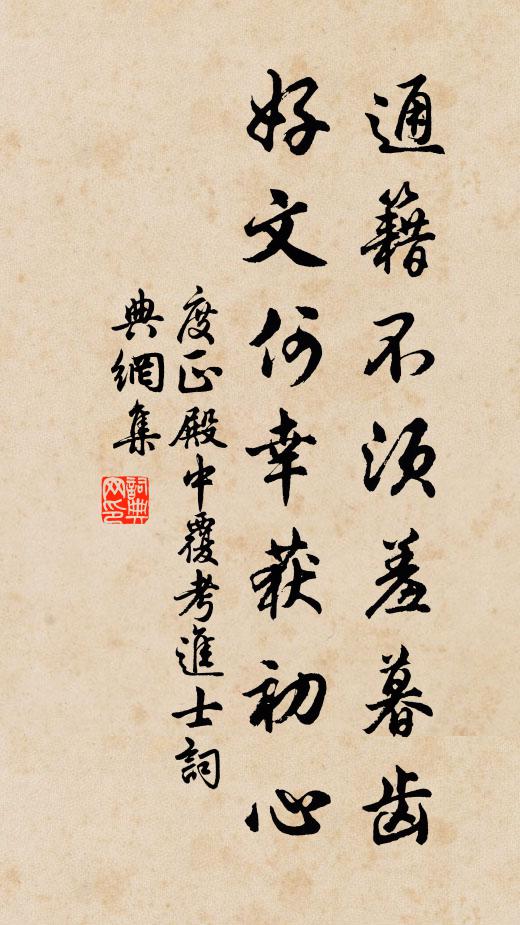 通籍不須羞暮齒
好文何幸获初心
度正殿中覆考進士詞
典網集
詞典网印